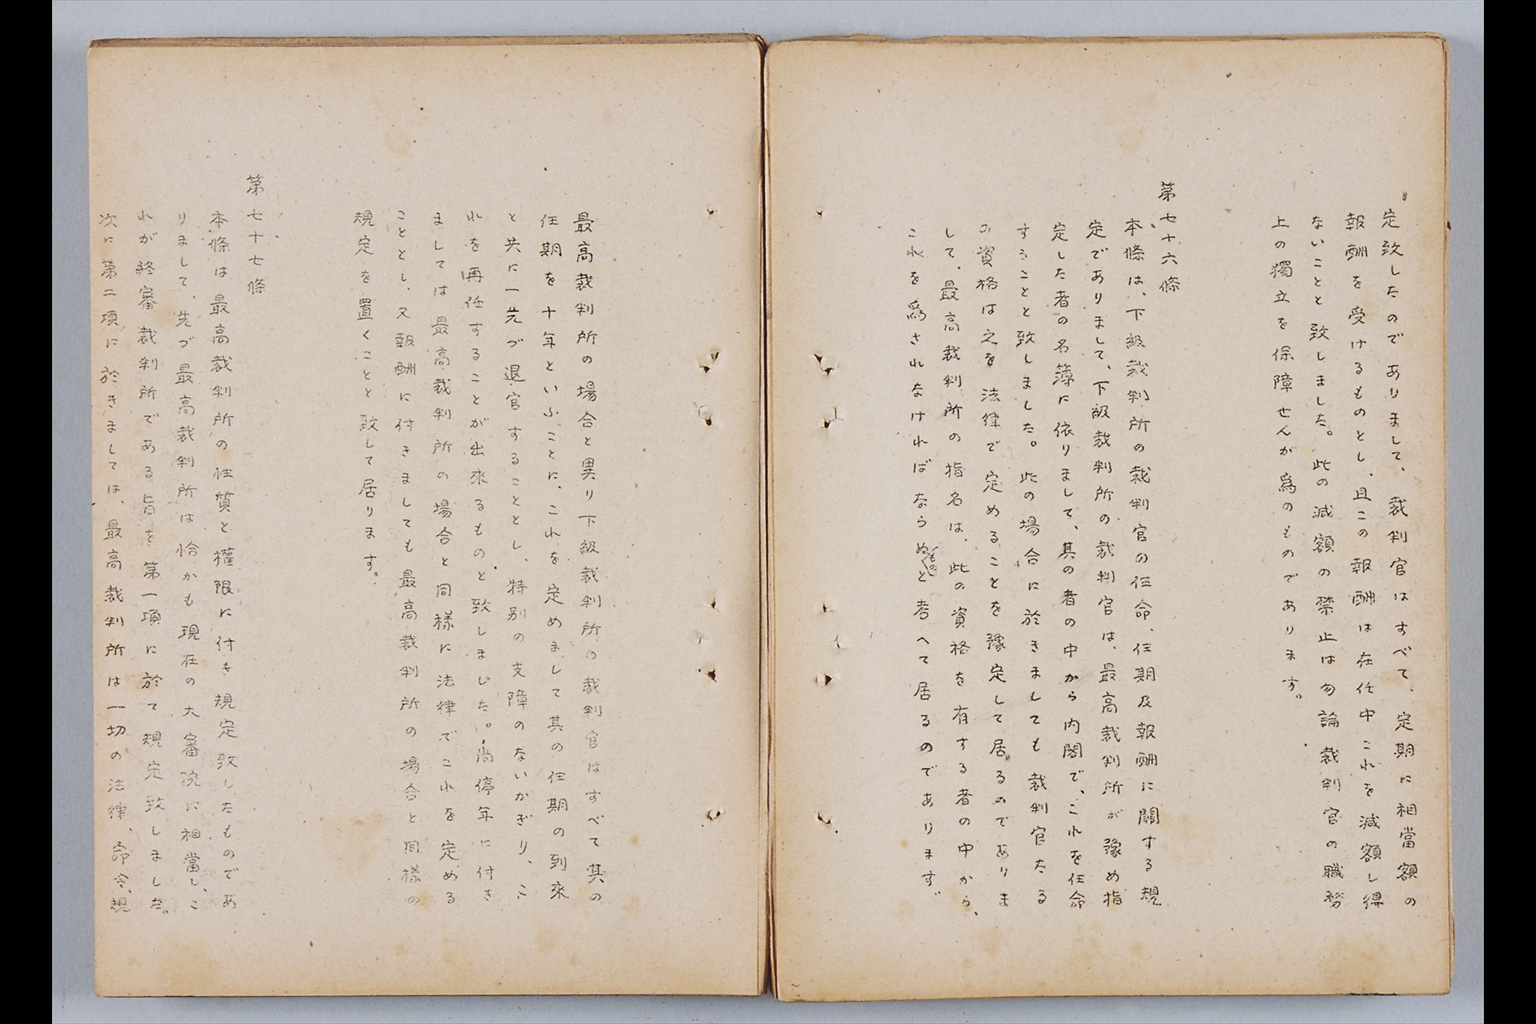 定致したのでありまして、裁判官はすべて、定期に相當額の
報酬を受けるものとし、且この報酬は在任中これを減額し得
ないことと致しました。此の減額の禁止は勿論裁判官の職務
上の獨立を保障せんが爲のものであります。
第七十六條
本條は、下級裁判所の裁判官の任命、任期及報酬に關する規
定でありまして、下級裁判所の裁判官は、最高裁判所が豫め指
定した者の名簿に依りまして、其の者の中から内閣で、これを任命
することと致しました。此の場合に於きましても裁判官たる
の資格は之を法律で定めることを豫定して居るのでありま
して、最高裁判所の指名は、此の資格を有する者の中から、
これを爲されなければならぬものと考へて居るのであります。
最高裁判所の場合と異り下級裁判所の裁判官はすべて其の
任期を十年といふことに、これを定めまして其の任期の到來
と共に一先づ退官することとし、特別の支障のないかぎり、こ
れを再任することが出來るものと致しました。尚停年に付き
ましては最高裁判所の場合と同樣に法律でこれを定める
こととし、又報酬に付きましても最高裁判所の場合と同樣の
規定を置くことと致して居ります。
第七十七條
本條は最高裁判所の性質と權限に付き規定致したものであ
りまして、先づ最高裁判所は恰かも現在の大審院に相當し、こ
れが終審裁判所である旨を第一項に於て規定致しました。
次に第二項に於きましては、最高裁判所は一切の法律、命令、規